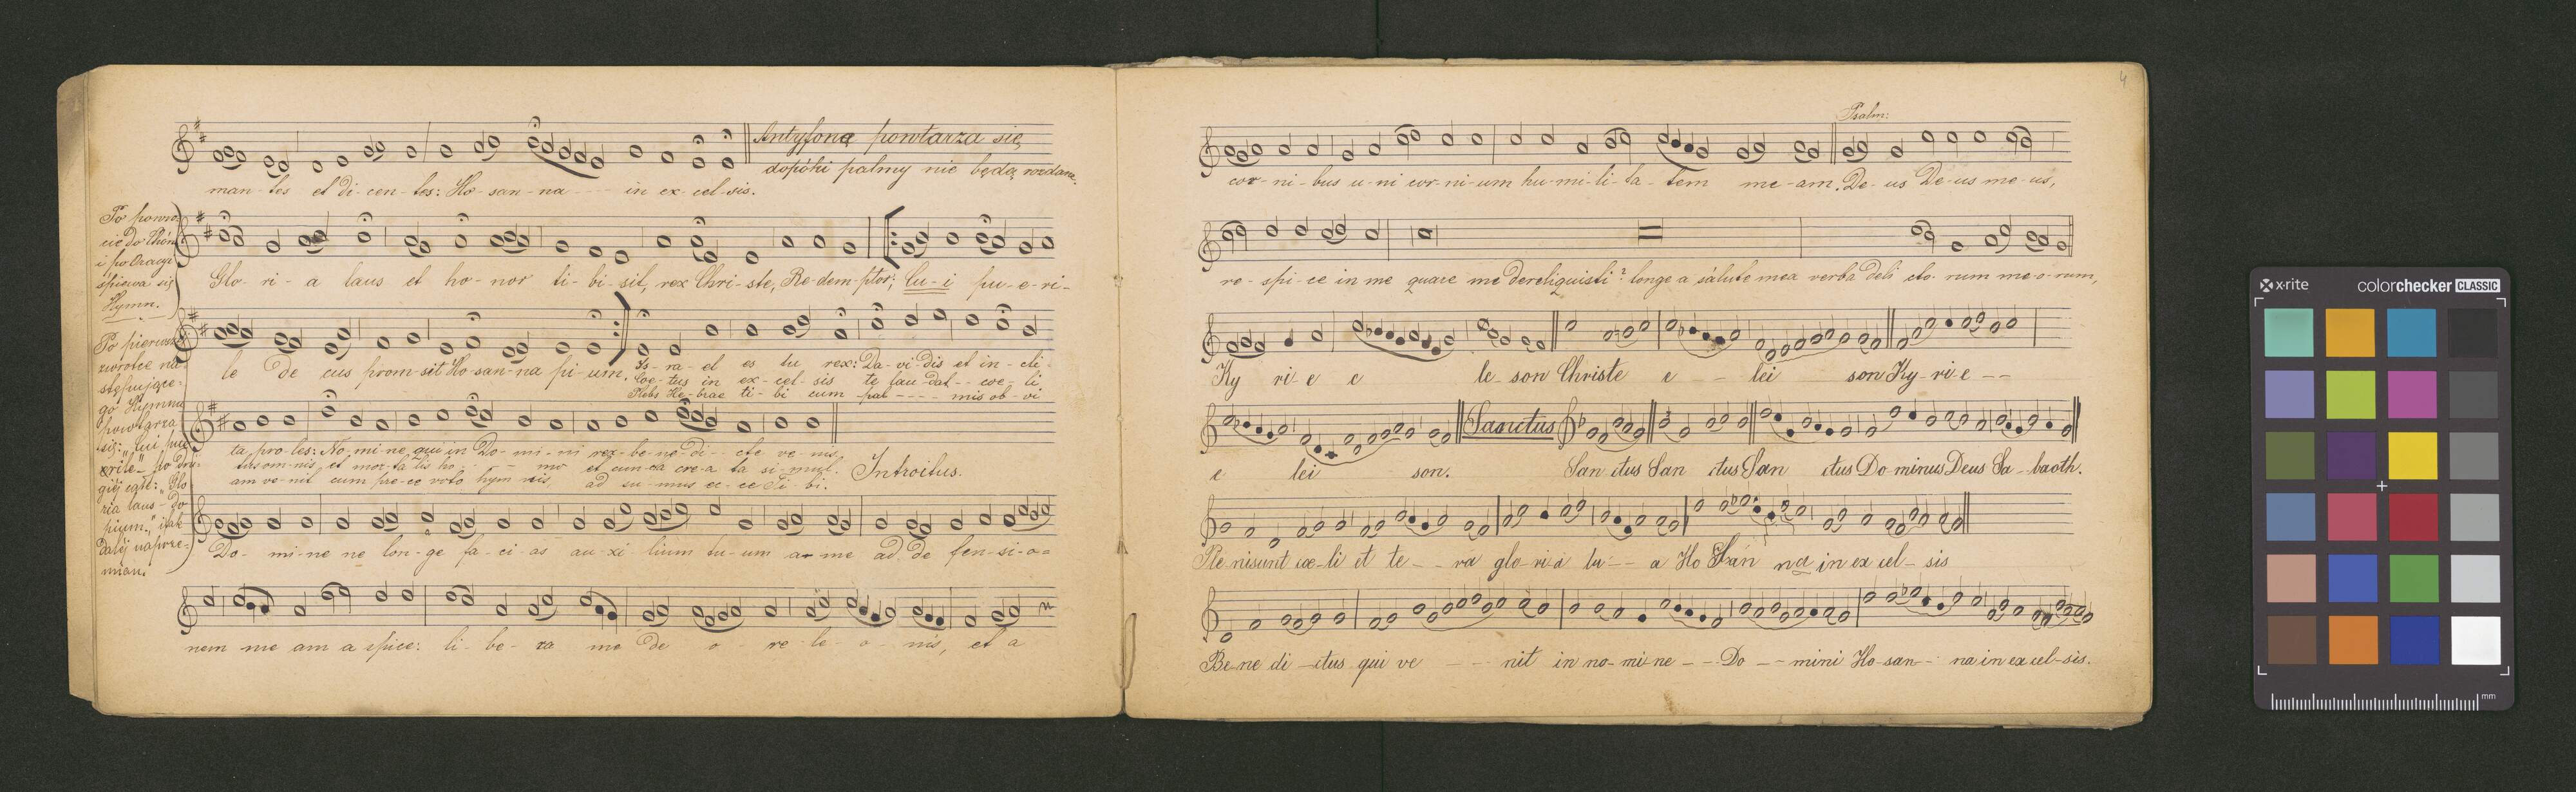 Antyfonę powtarza się,
dopóki palmy nie będą rozdane.
man-tes et di-cen-tes: Ho-san-na --- in ex-cel-sis.
Po powro-
cie do
i po Oracyi
śpiewa się
Hymn.
Glo-ri-a laus et ho-nor ti-bi-sit, rex Chri-ste, Re-dem-ptor; Cu-i pu-e-ri-
Po pierwszej
zwrotce na-
stępujące-
go Hymnu
powtarza
się: "Cui pue
rile" po dru-
giej część: "Glo
ria laus - do
pium.", i tak
dalej naprze-
mian.
le De cus prom-sit Ho-san-na pi-um. Is-ra-el es tu rex: Da-vi-dis et in-cli-
Coe-tus in ex-cel-sis te lau-dat -- coe-li
Plebs He-brae ti-bi cum pal ---- mis ob-vi
ta pro-les: No-mi-ne qui in Do-mi-ni rex-be-ne-di-cte ve-nis.
tus om-nis, et mor-ta-lis ho --- mo et cun-cta cre-a ta si-mul.
am ve-nit cum pre-ce voto hym nis, ad su-mus ec-ce Ti-bi.
Introitus.
Do-mi-ne ne lon-ge fa-ci-as au-xi lium tu-um a me ad de fen-si-o-
nem me am a spice: li-be-ra me de o-re le-o-nis, et a
4
Psalm:
cor-ni-bus u-ni cor-ni-um hu-mi-li-ta-tem me-am. De-us De-us me-us,
re-spi-ce in me quare me dereliquisti? longe a salute mea verba deli cto-rum me-o-rum,
Ky ri-e e le-son Christe e -- lei son Ky-ri-e --
e lei son. Sanctus San ctus San ctus San ctus Do minus Deus Sa-baoth.
Ple-nisunt cœ-li et te -- ra glo-ri-a tu -- a Ho San na in ex cel-sis
Be-ne di-ctus qui ve --- nit in no-mi-ne -- Do -- mini Ho-san-- na in ex cel-sis.
x-rite colorchecker CLASSIC
mm